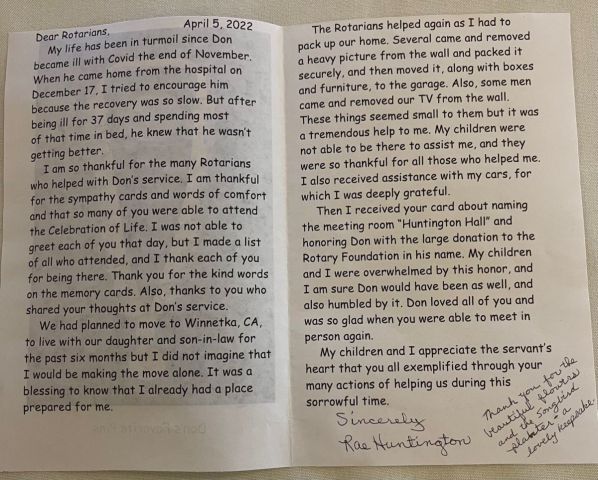 April 5, 2022
Dear Rotarians,
My life has been in turmoil since Don
became ill with Covid the end of November.
When he came home from the hospital on
December 17, I tried to encourage him
because the recovery was so slow. But after
being ill for 37 days and spending most
of that time in bed, he knew that he wasn't
getting better.
I am so thankful for the many Rotarians
who helped with Don's service. I am thankful
for the sympathy cards and words of comfort
and that so many of you were able to attend
the Celebration of Life. I was not able to
greet each of you that day, but I made a list
of all who attended, and I thank each of you
for being there. Thank you for the kind words
on the memory cards. Also, thanks to you who
shared your thoughts at Don's service.
We had planned to move to Winnetka, CA,
to live with our daughter and son-in-law for
the past six months but I did not imagine that
I would be making the move alone. It was a
blessing to know that I already had a place
prepared for me.
The Rotarians helped again as I had to
pack up our home. Several came and removed
a heavy picture from the wall and packed it
securely, and then moved it, along with boxes
and furniture, to the garage. Also, some men
came and removed our TV from the wall.
These things seemed small to them but it was
a tremendous help to me. My children were
not able to be there to assist me, and they
were so thankful for all those who helped me.
I also received assistance with my cars, for
which I was deeply grateful.
Then I received your card about naming
the meeting room "Huntington Hall" and
honoring Don with the large donation to the
Rotary Foundation in his name. My children
and I were overwhelmed by this honor, and
I am sure Don would have been as well, and
also humbled by it. Don loved all of you and
was so glad when you were able to meet in
person again.
My children and I appreciate the servant's
heart that you all exemplified through your
many actions of helping us during this
sorrowful time.
Sincerely
Rae Huntington
Thank you for the
beautiful flowers
and the songbird
planter - a
lovely keepsake.